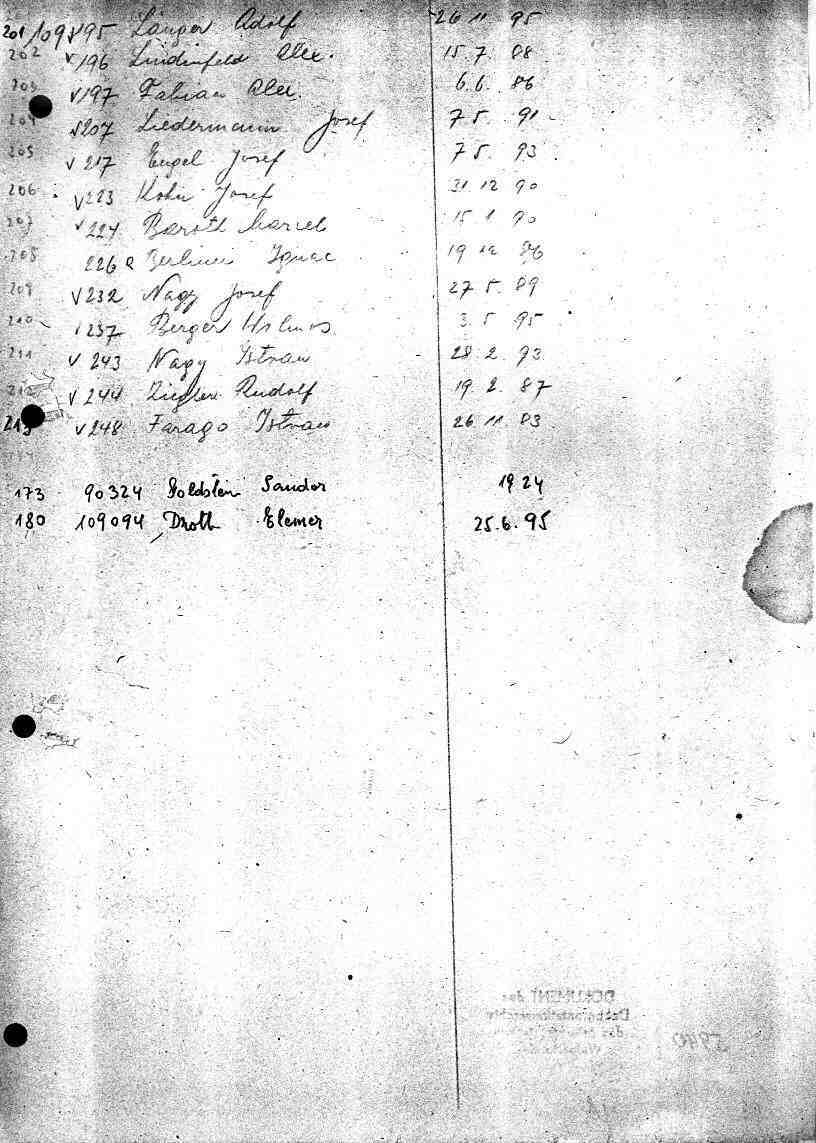 201 109195 Langer Adolf 26 11. 95
202 v 196 Lindenfeld Alex. 15. 7. 88
203 v 197 Fabian Alex. 6.6. 86
204 v 207 Liedermann Josef 7 5. 91
205 v 217 Engel Josef 7 5. 93
206 v 223 Kohn Josef 31. 12 90
207 v 224 Baroth Marcel 15. 1. 90
208 226 Berliner Ignac 19 12 86
209 v 232 Nagy Josef 27 5. 89
210 237 Berger 3. 5 95
211 v 243 Nagy Istvan 28 2. 93
212 v 244 Ziegler Rudolf 19 2. 87
213 v 248 Farago Istvan 26 11. 83
173 90324 Goldstein Sandor 1924
180 109094 Droth Elemer 25.6.95
DOKUMENT des
5940